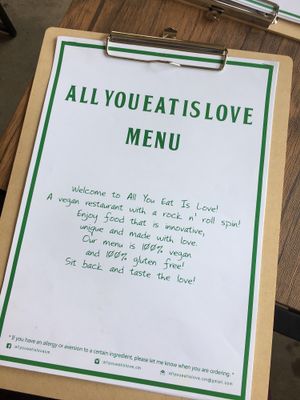 ALL YOU EAT IS LOVE
MENU
Welcome to All You Eat Is Love!
A vegan restaurant with a rock n' roll spin!
Enjoy food that is innovative,
unique and made with love.
Our menu is 100% vegan
and 100% gluten free!
Sit back and taste the love!
* If you have an allergy or aversion to a certain ingredient, please let me know when you are ordering. *